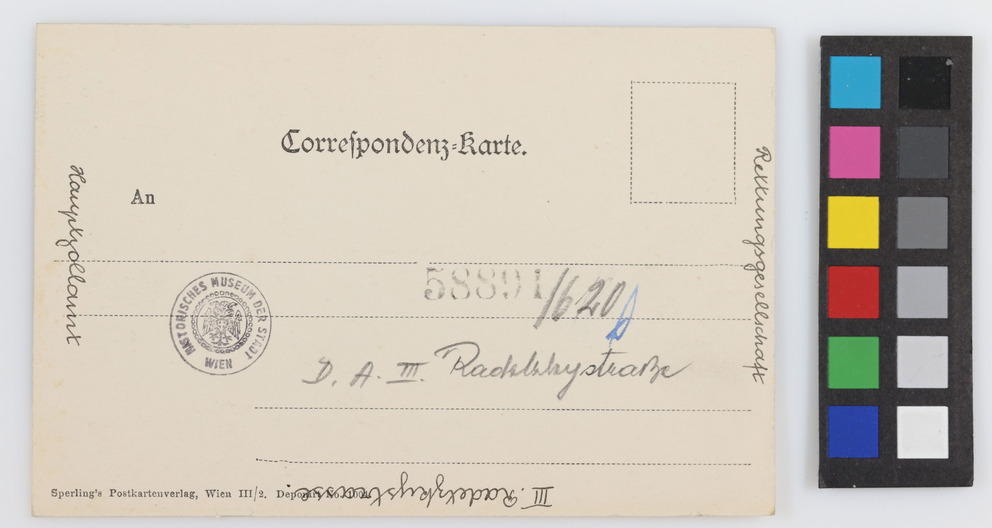 Correspondenz-Karte.
An
Hauptzollamt
Rettungsgesellschaft
58891/620
HISTORISCHES MUSEUM DER STADT WIEN
D. A. III. Radetzkystraße
III. Radetzkystrasse
Sperling's Postkartenverlag, Wien III/2. Deponirt No. 1004.